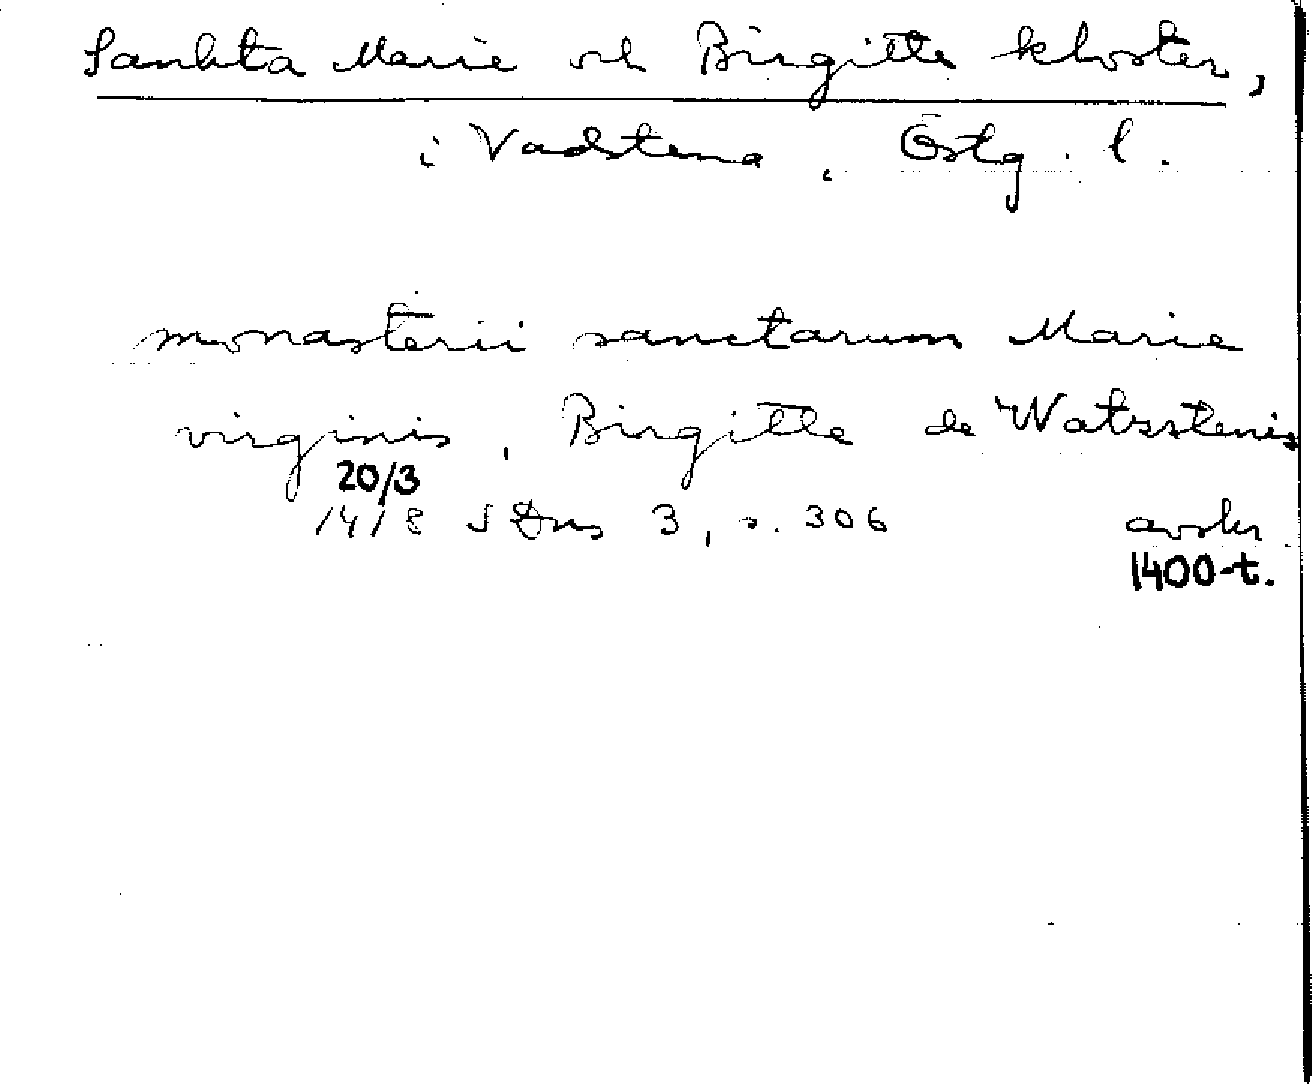 Sankta Marie och Birgitte kloster,
i Vadstena, Östg. l.
monasterii sanctarum Marie
virginis, Birgitte de Watzstenis
20/3
1418 SDns 3, s. 306 avskr
1400-t.